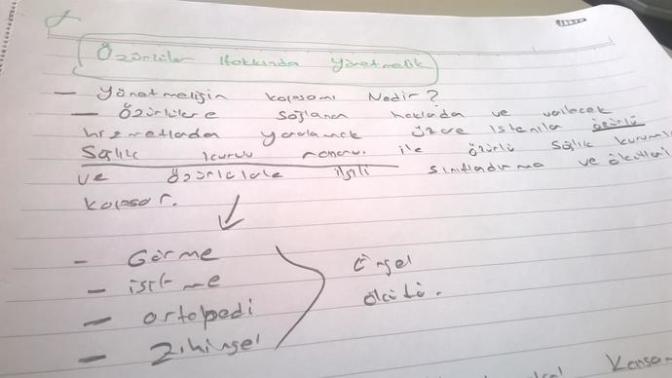 Özürlüler Hakkında Yönetmelik
— Yönetmeliğin kapsamı Nedir?
— Özürlülere sağlanan haklardan ve verilecek
hizmetlerden yararlanmak üzere istenilen özürlü
Sağlık kurulu raporu ile özürlü sağlık kurulu
ve özürlülerle ilgili sınıflandırma ve ölçütleri
kapsar.
— Görme
— işitme
— ortopedi
— Zihinsel
Engel
ölçütü.